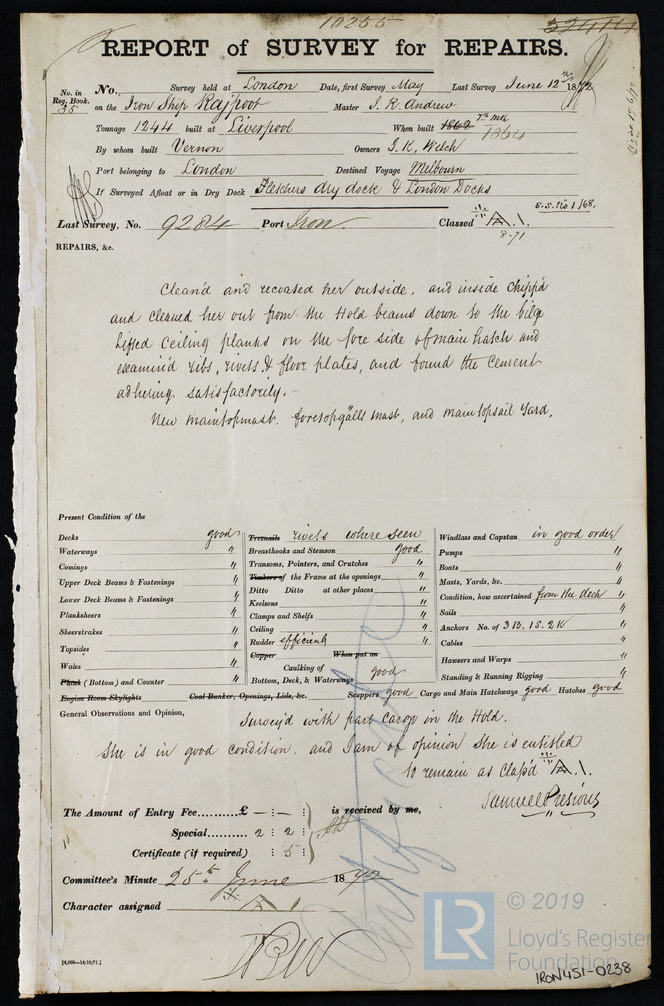 10255
REPORT of SURVEY for REPAIRS.
No. in Reg. Book. 35
No. Survey held at London Date, first Survey May Last Survey June 12th 1872
on the Iron Ship Rajpoot Master J. R. Andrew
Tonnage 1244 built at Liverpool When built 1862 7th Mo 1864
By whom built Vernon Owners J. K. Welch
Port belonging to London Destined Voyage Melbourn
If Surveyed Afloat or in Dry Dock Fletchers dry dock & London Docks
S.S. No 1/68.
Last Survey, No. 9284 Port Iron. Classed A.1.
8.71
REPAIRS, &c.
Clean'd and recoated her outside, and inside chipp'd
and cleared her out from the Hold beams down to the bilge
Lifted Ceiling planks on the fore side of main hatch and
examin'd ribs, rivets & floor plates, and found the Cement
adhering satisfactorily.-
New maintopmast. foretopgalls mast, and maintopsail Yard.
Present Condition of the
Decks good
Waterways "
Comings "
Upper Deck Beams & Fastenings "
Lower Deck Beams & Fastenings "
Planksheers "
Sheerstrakes "
Topsides "
Wales "
Plank (Bottom) and Counter "
Engine Room Skylights Coal Bunker, Openings, Lids, &c.
Treenails rivets where seen
Breasthooks and Stemson good
Transoms, Pointers, and Crutches "
Timbers of the Frame at the openings "
Ditto Ditto at other places "
Keelsons "
Clamps and Shelfs "
Ceiling "
Rudder efficient "
Copper When put on
Caulking of
Bottom, Deck, & Waterways good
Windlass and Capstan in good order
Pumps "
Boats "
Masts, Yards, &c. "
Condition, how ascertained from the deck "
Sails "
Anchors No. of 3 B. 1 S. 2 K "
Cables "
Hawsers and Warps "
Standing & Running Rigging "
Scuppers good Cargo and Main Hatchways good Hatches good
General Observations and Opinion,
Survey'd with part Cargo in the Hold.
She is in good condition. and I am of opinion She is entitled
to remain as Class'd A.1.
Samuel Presious
The Amount of Entry Fee..........£ - : - : is received by me,
Special.......... 2 : 2 :
Certificate (if required) : 5 :
Committee's Minute 25th June 1872
Character assigned A 1
[4,000—14/10/71.]
LR
© 2019
Lloyd's Register
Foundation
IRON451-0238